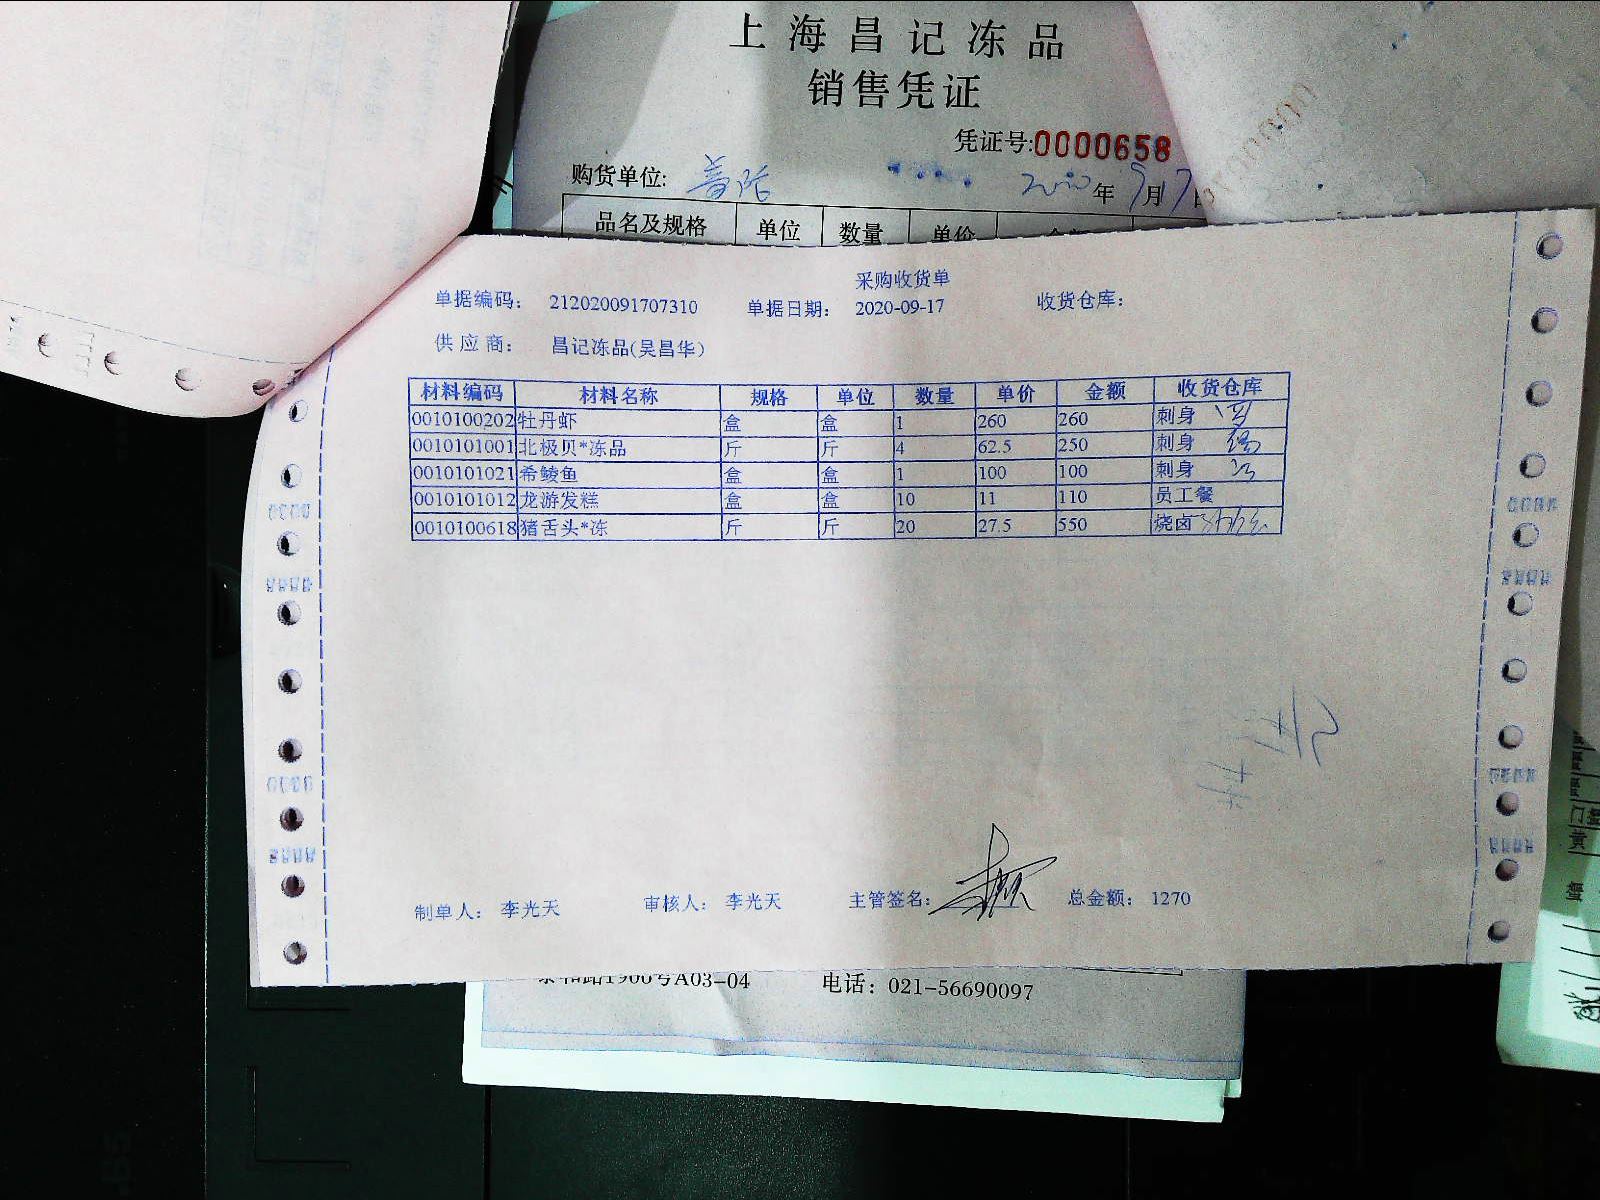 上海昌记冻品
销售凭证
凭证号:0000658
购货单位: 年 月 7
品名及规格 单位 数量 单价 金额
采购收货单
单据编码: 212020091707310 单据日期: 2020-09-17 收货仓库:
供应商: 昌记冻品(吴昌华)
材料编码 材料名称 规格 单位 数量 单价 金额 收货仓库
0010100202 牡丹虾 盒 盒 1 260 260 刺身
0010101001 北极贝*冻品 斤 斤 4 62.5 250 刺身
0010101021 希鲮鱼 盒 盒 1 100 100 刺身
0010101012 龙游发糕 盒 盒 10 11 110 员工餐
0010100618 猪舌头*冻 斤 斤 20 27.5 550 烧卤
制单人: 李光天 审核人: 李光天 主管签名: 总金额: 1270
泰和路1900号A03-04 电话: 021-56690097